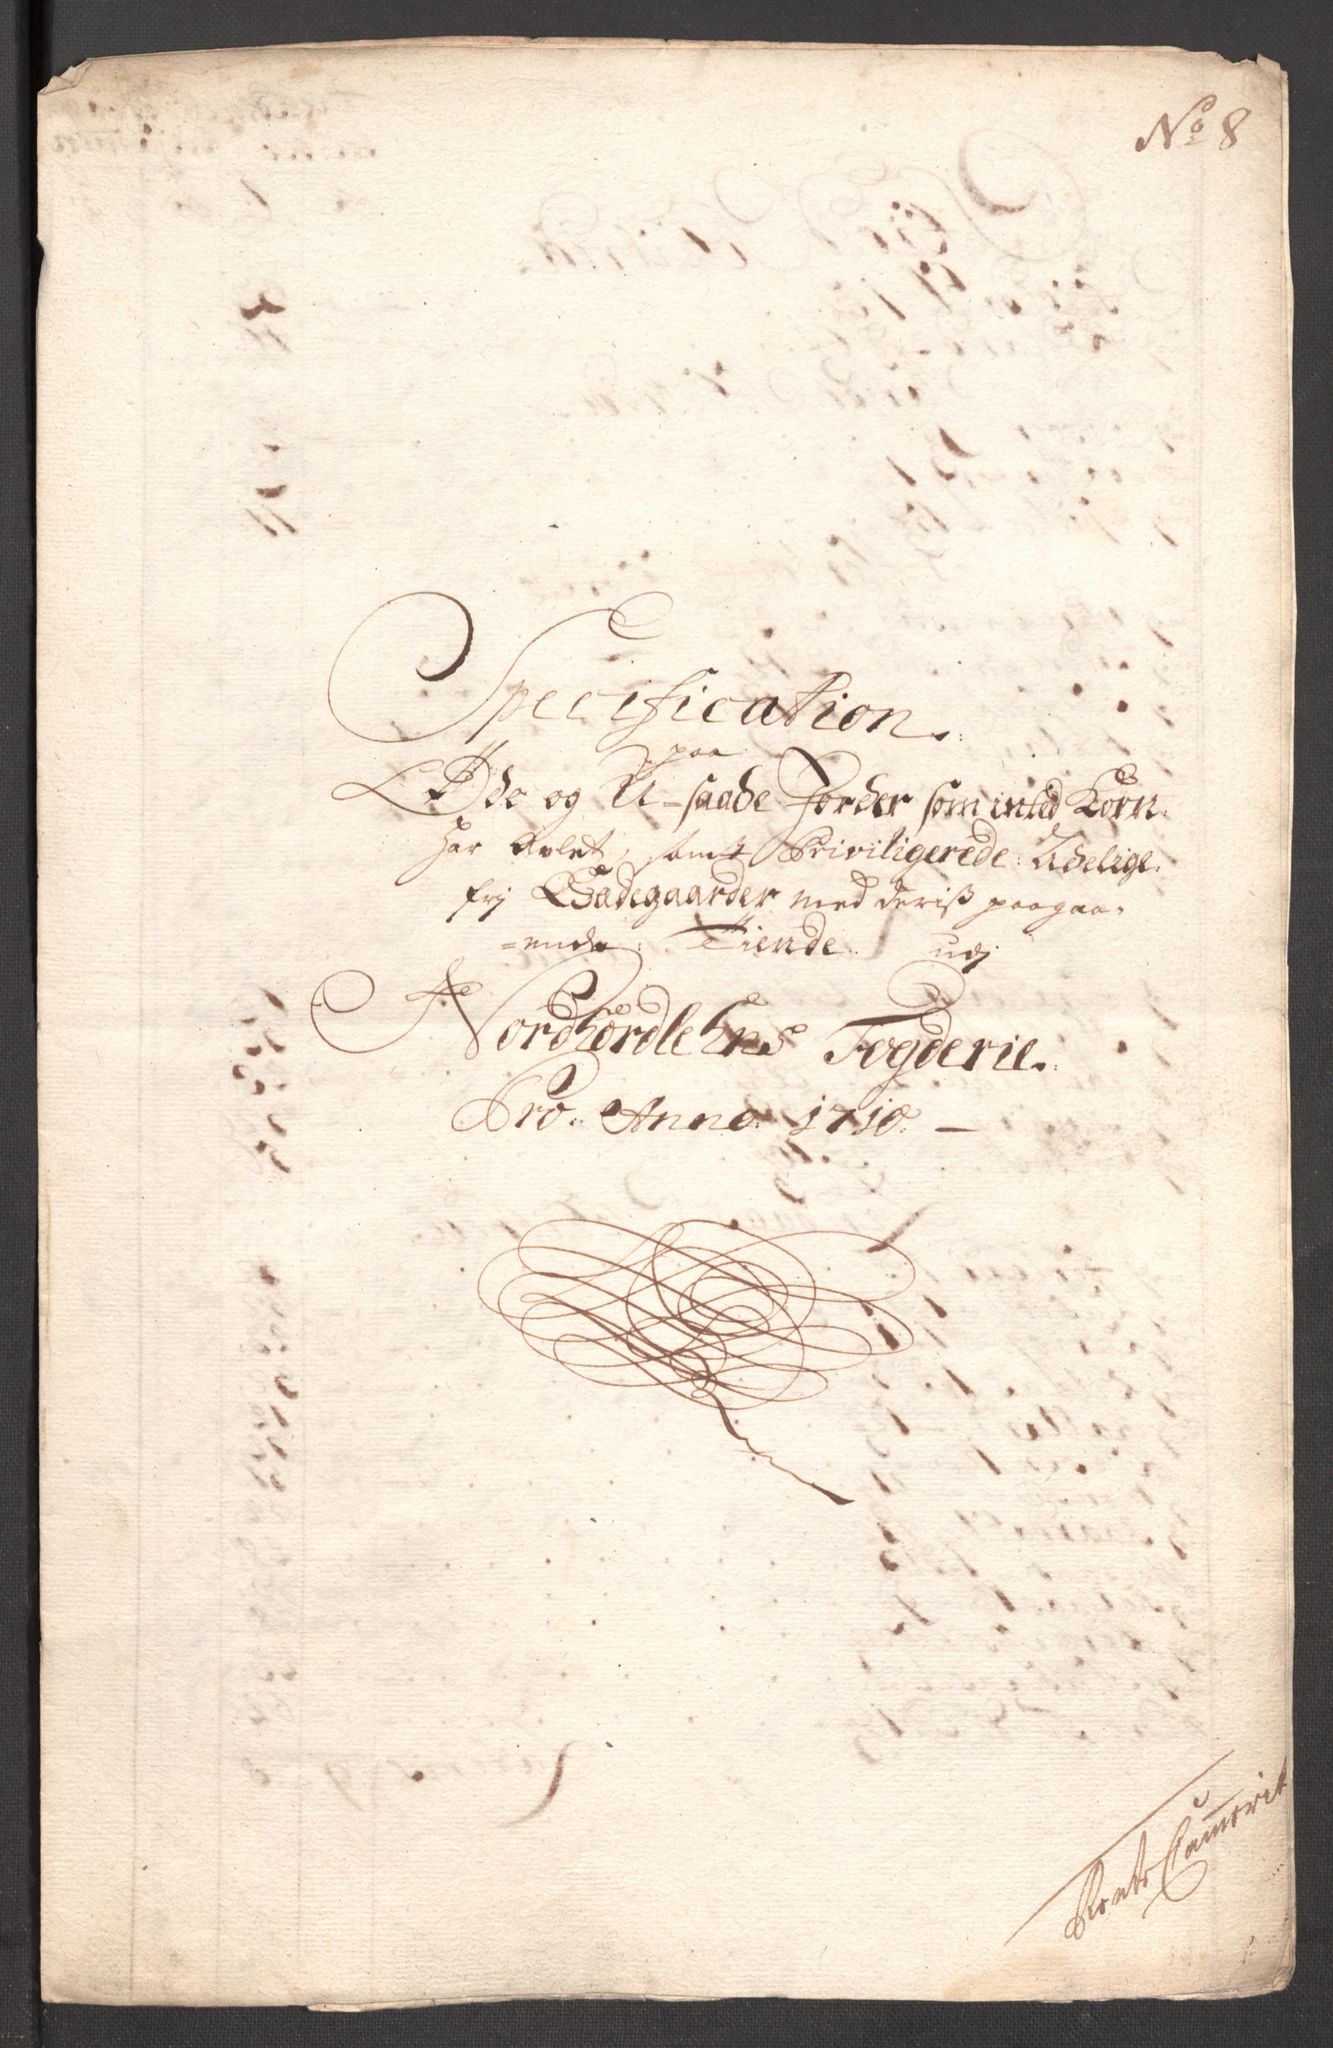 No 8
Specification.
paa
Øde og U-saade Jorder som inted Korn.
har Avlet, samt Priviligerede Adelige.
frj Sædegaarder med deriß paagaa-
=ende Tiende udj
Nordhordlehns Fogderie.
Pro. Anno. 1710. —
Rente Cammerit